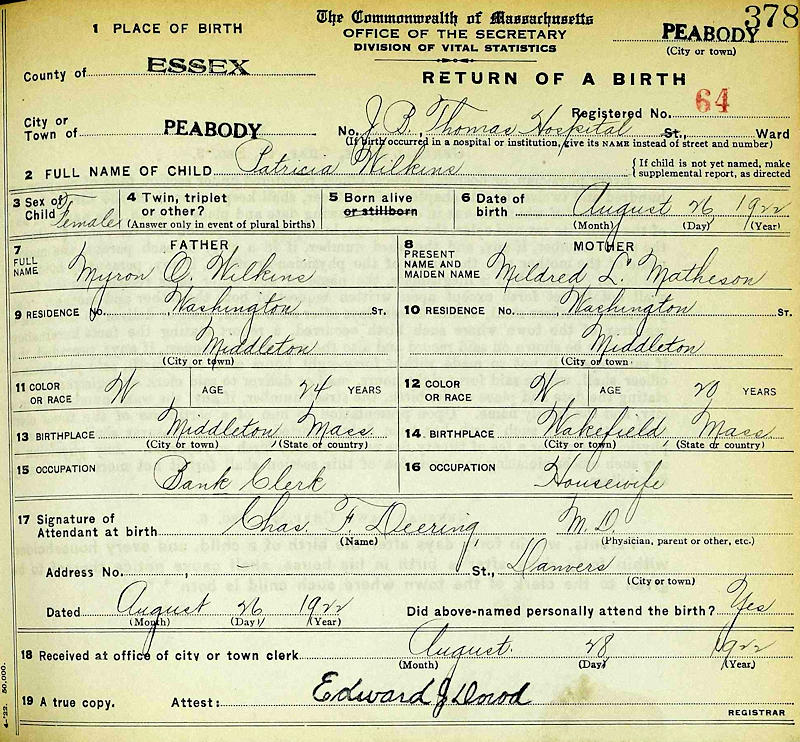 378
1 PLACE OF BIRTH
The Commonwealth of Massachusetts
OFFICE OF THE SECRETARY
DIVISION OF VITAL STATISTICS
PEABODY
(City or town)
County of ESSEX
RETURN OF A BIRTH
Registered No. 64
City or
Town of PEABODY No. J. B. Thomas Hospital St., Ward
(If birth occurred in a hospital or institution, give its NAME instead of street and number)
2 FULL NAME OF CHILD Patricia Wilkins { If child is not yet named, make
supplemental report, as directed
3 Sex of Child Female
4 Twin, triplet or other?
(Answer only in event of plural births)
5 Born alive
or stillborn
6 Date of birth August 26 1922
(Month) (Day) (Year)
7 FATHER
FULL NAME Myron O. Wilkins
8 MOTHER
PRESENT NAME AND MAIDEN NAME Mildred L. Matheson
9 RESIDENCE No. Washington St.
Middleton
(City or town)
10 RESIDENCE No. Washington St.
Middleton
(City or town)
11 COLOR OR RACE W AGE 24 YEARS
12 COLOR OR RACE W AGE 20 YEARS
13 BIRTHPLACE Middleton Mass.
(City or town) (State or country)
14 BIRTHPLACE Wakefield, Mass
(City or town) (State or country)
15 OCCUPATION Bank Clerk
16 OCCUPATION Housewife
17 Signature of
Attendant at birth Chas. F. Deering, M.D.
(Name) (Physician, parent or other, etc.)
Address No. , - St., Danvers
(City or town)
Dated August 26 1922 Did above-named personally attend the birth? Yes
(Month) (Day) (Year)
18 Received at office of city or town clerk August. 28 1922
(Month) (Day) (Year)
19 A true copy. Attest: Edward J
REGISTRAR
4-'22. 50,000.